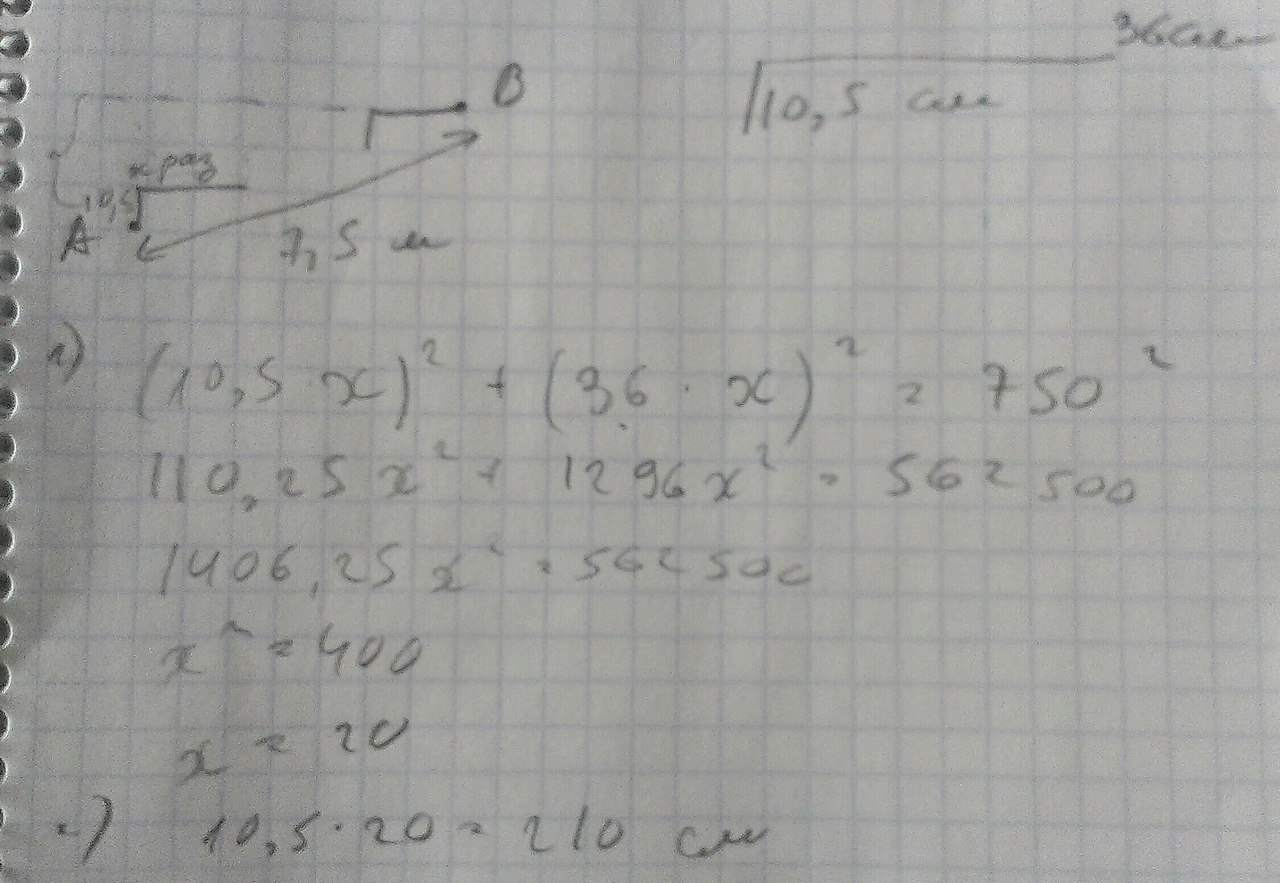 36 см
10,5 см
B
x раз
10,5
A
7,5 м
1) (10,5 x)² + (36 · x)² = 750²
110,25 x² + 1296 x² = 562 500
1406,25 x² = 562 500
x² = 400
x = 20
2) 10,5 · 20 = 210 см